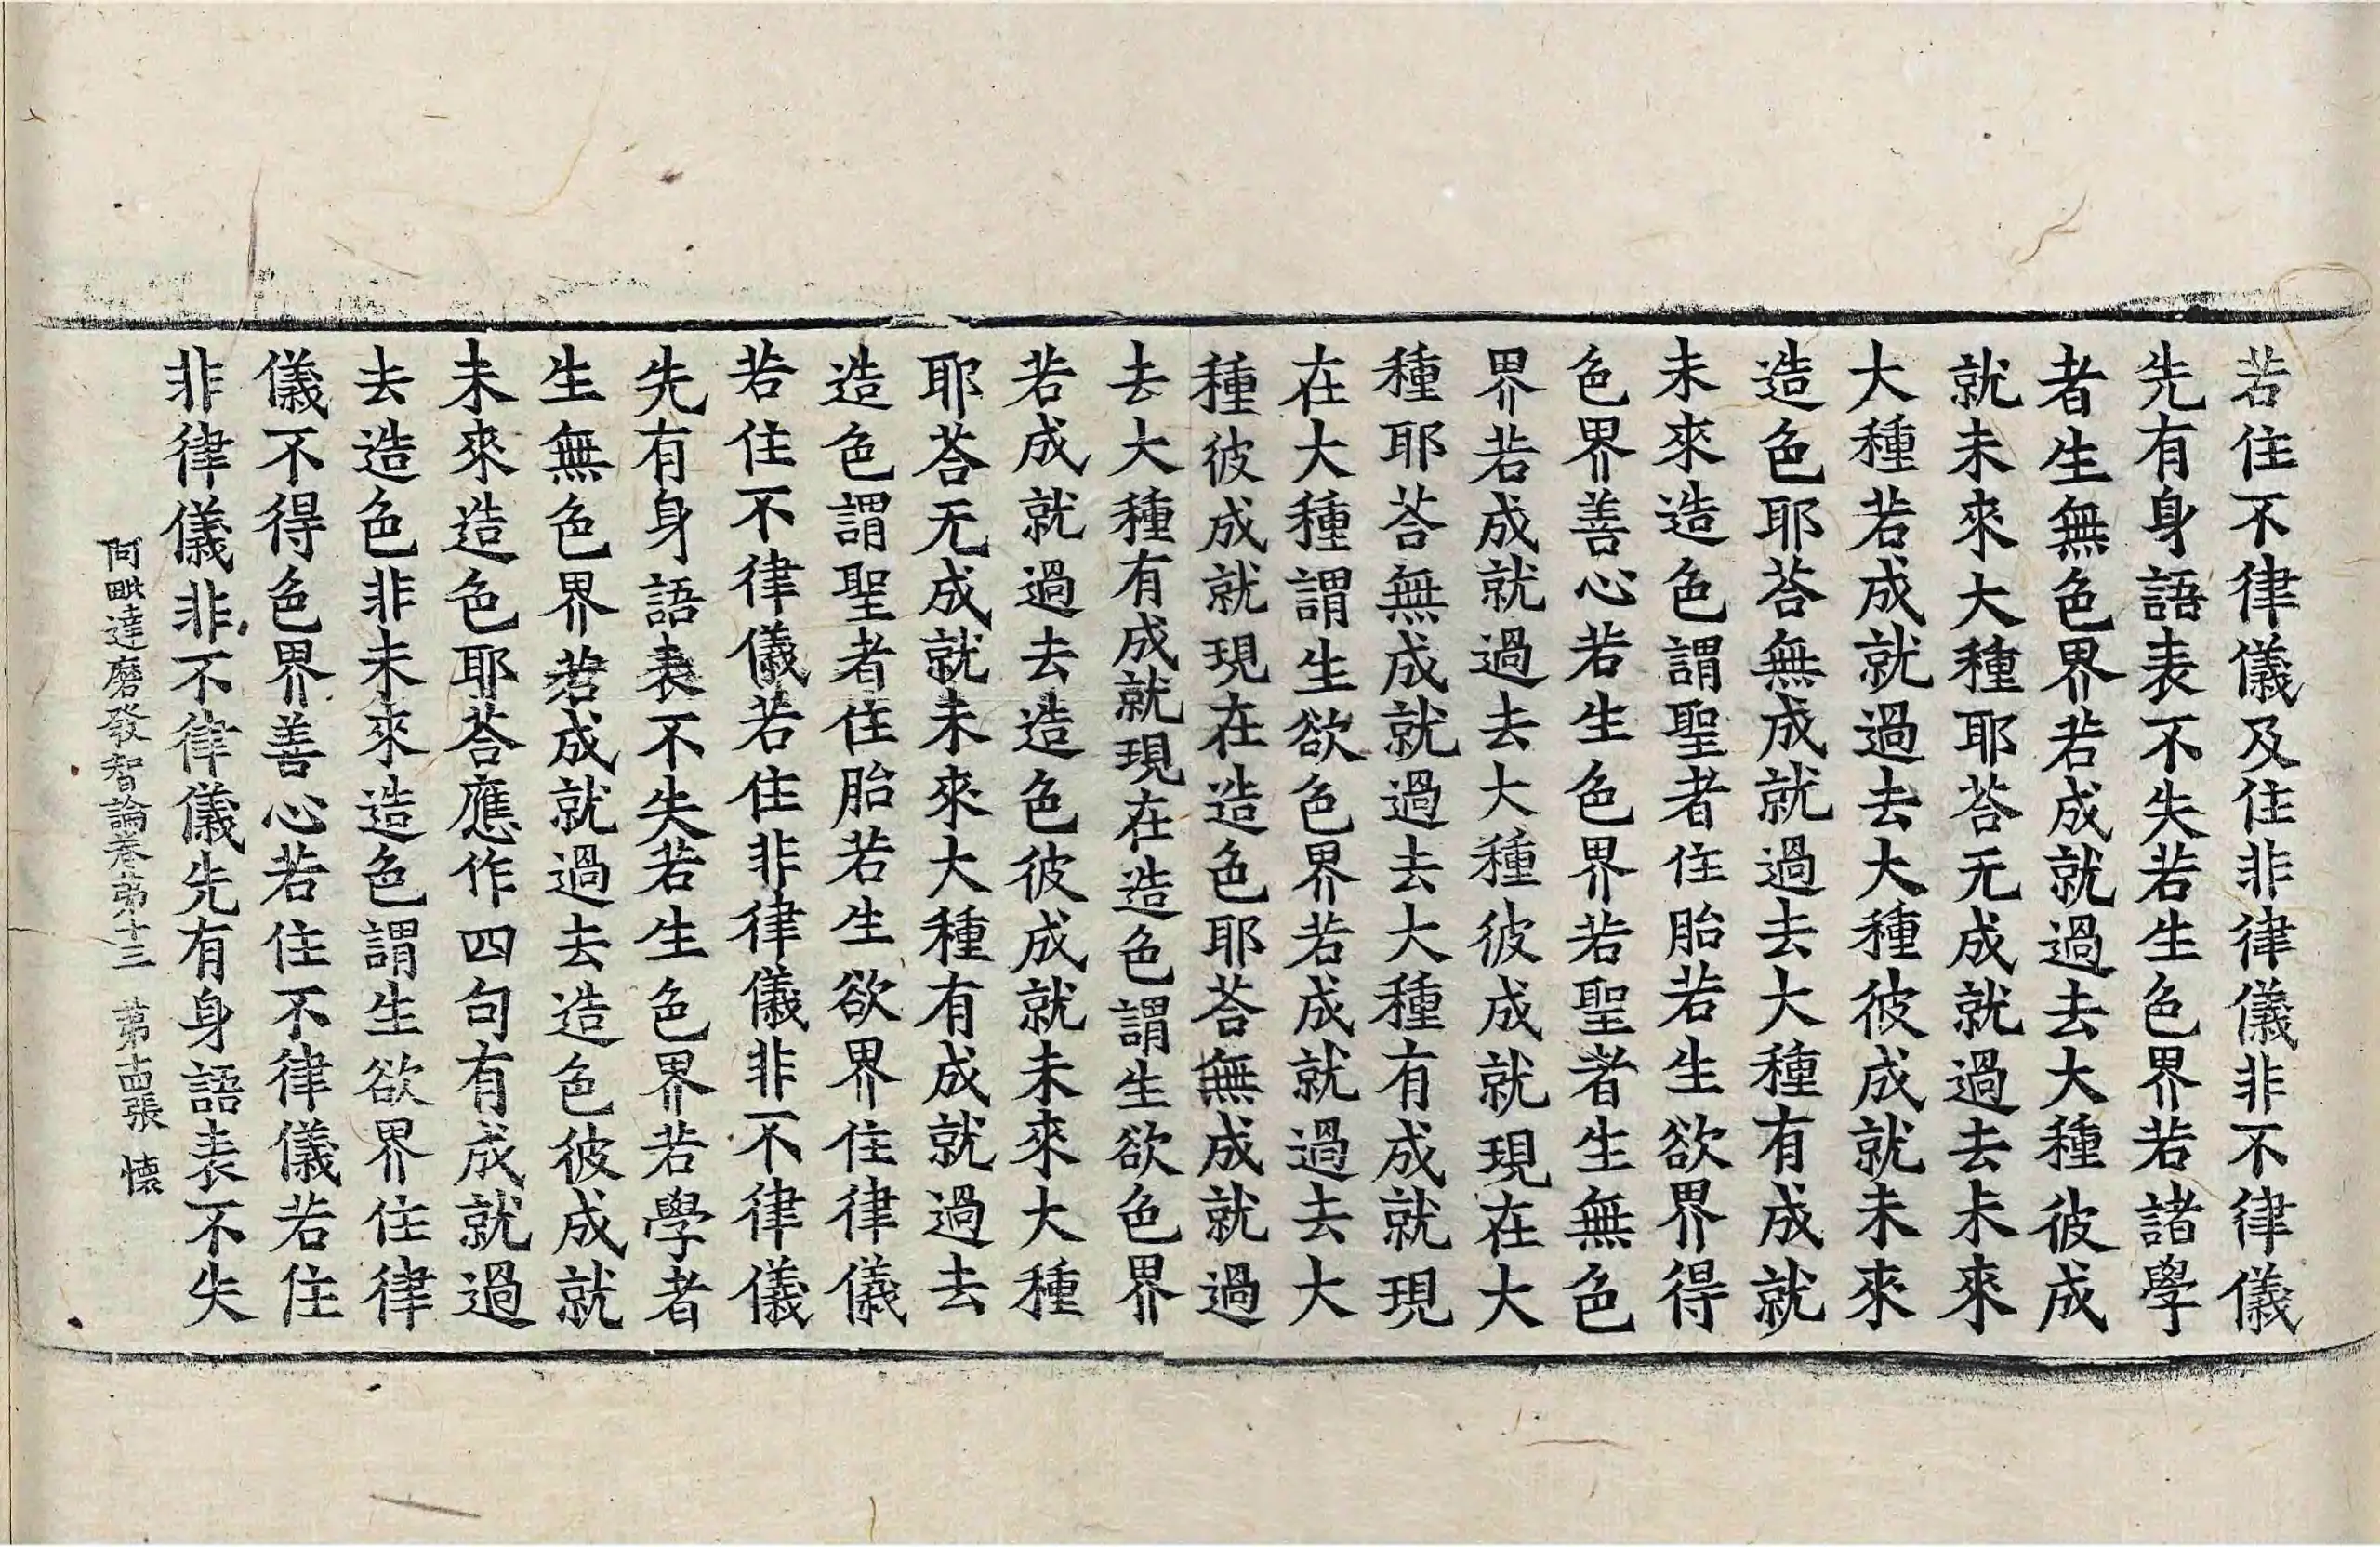 若住不律儀及住非律儀非不律儀
先有身語表不失若生色界若諸學
者生無色界若成就過去大種彼成
就未來大種耶荅无成就過去未來
大種若成就過去大種彼成就未來
造色耶荅無成就過去大種有成就
未來造色謂聖者住胎若生欲界得
色界善心若生色界若聖者生無色
界若成就過去大種彼成就現在大
種耶荅無成就過去大種有成就現
在大種謂生欲色界若成就過去大
種彼成就現在造色耶荅無成就過
去大種有成就現在造色謂生欲色界
若成就過去造色彼成就未來大種
耶荅无成就未來大種有成就過去
造色謂聖者住胎若生欲界住律儀
若住不律儀若住非律儀非不律儀
先有身語表不失若生色界若學者
生無色界若成就過去造色彼成就
未來造色耶荅應作四句有成就過
去造色非未來造色謂生欲界住律
儀不得色界善心若住不律儀若住
非律儀非不律儀先有身語表不失
阿毗達磨發智論卷第十三 第十四張 懷